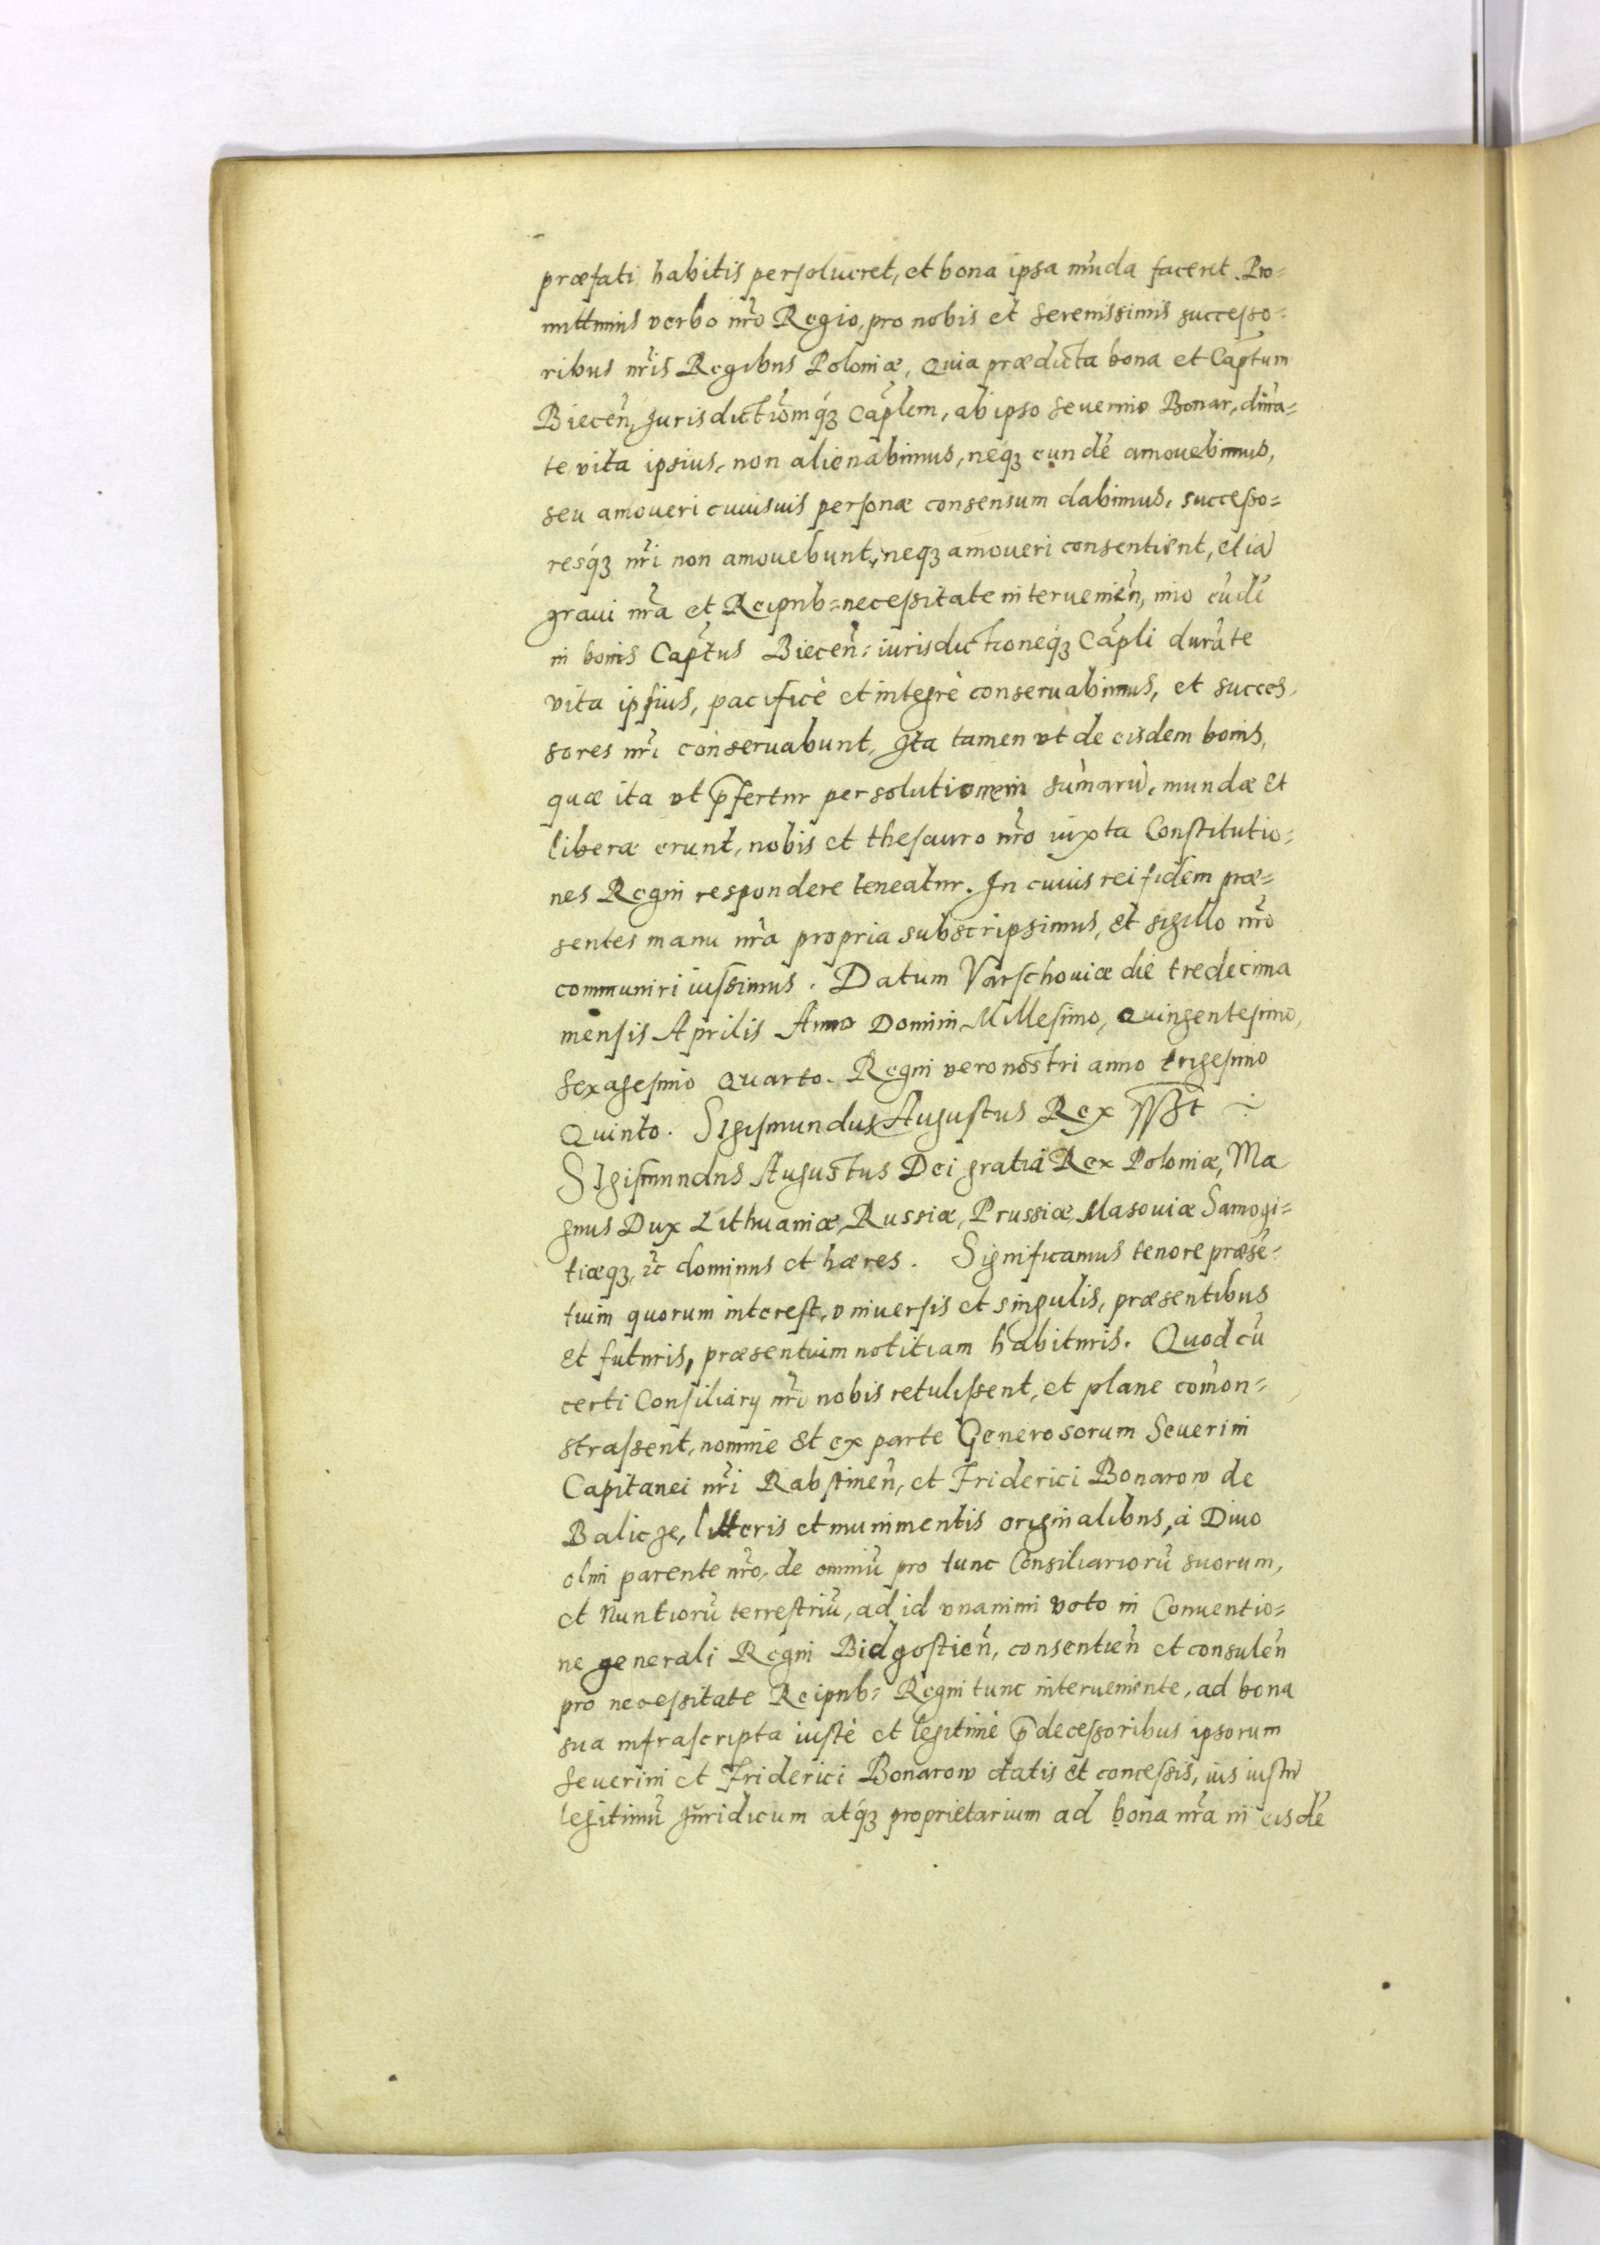 præfati habitis persolueret, et bona ipsa mũda faceret. Pro=
mittimus verbo nr̃o Regio, pro nobis et Serenissimis successo=
ribus nr̃is Regibus Poloniæ, Quia prædicta bona et Cap̃tum
Biecen̄, Jurisdictiõmq́ꝫ Cap̃lem, ab ipso Seuerino Bonar, dura=
te vita ipsius, non alienabimus, neq́ꝫ eundē amouebimus,
seu amoueri cuiusuis personæ consensum dabimus, successo=
resq́ꝫ nr̃i non amouebunt, neqꝫ amoueri consentient, etiā
graui nr̃a et Reipub= necessitate interuenien̄, imo eūdē
in bonis Cap̃tus Biecen̄: iurisdictioneq́ꝫ Cap̃li durāte
vita ipsius, pacificè et integrè conseruabimus, et succes,
sores nr̃i conseruabunt, Ita tamen vt de eisdem bonis,
quæ ita vt p̃fertur per solutionem sum̄arū, mundæ et
liberæ erunt, nobis et thesauro nr̃o iuxta Constitutio=
nes Regni respondere teneatur. In cuius rei fidem præ=
sentes manu nr̃a propria subscripsimus, et sigillo nr̃o
communiri iussimus. Datum Varschouiæ die tredecima
mensis Aprilis Anno Domini Millesimo, Quingentesimo,
Sexagesimo Quarto. Regni vero nostri anno trigesimo
Quinto. Sigismundus Augustus Rex ssst
SIgismundus Augustus Dei gratia Rex Poloniæ, Ma
gnus Dux Lithuaniæ, Russiæ, Prussiæ, Masouiæ Samogi=
tiæqꝫ, ic̃ dominus et hæres. Significamus tenore præsē=
tium quorum interest, vniuersis et singulis, præsentibus
et futuris, præsentium notitiam habituris. Quod cū
certi Consiliarij nr̃i nobis retulissent, et plane com̄on=
strassent, nomine et ex parte Generosorum Seuerini
Capitanei nr̃i Rabstinen̄, et Friderici Bonarow de
Balicze, litteris et munimentis originalibus, à Diuo
olim parente nr̃o, de omniū pro tunc Consiliariorū suorum,
et Nuntiorū terrestriū, ad id vnanimi voto in Conuentio=
ne generali Regni Bidgostien̄, consentien̄ et consulen̄
pro necessitate Reipub: Regni tunc interueniente, ad bona
sua infrascripta iustè et legitimè p̃decessoribus ipsorum
Seuerini et Friderici Bonarow datis et concessis, ius iustū
legitimū Juridicum atq́ꝫ proprietarium ad bona nr̃a in eisdē